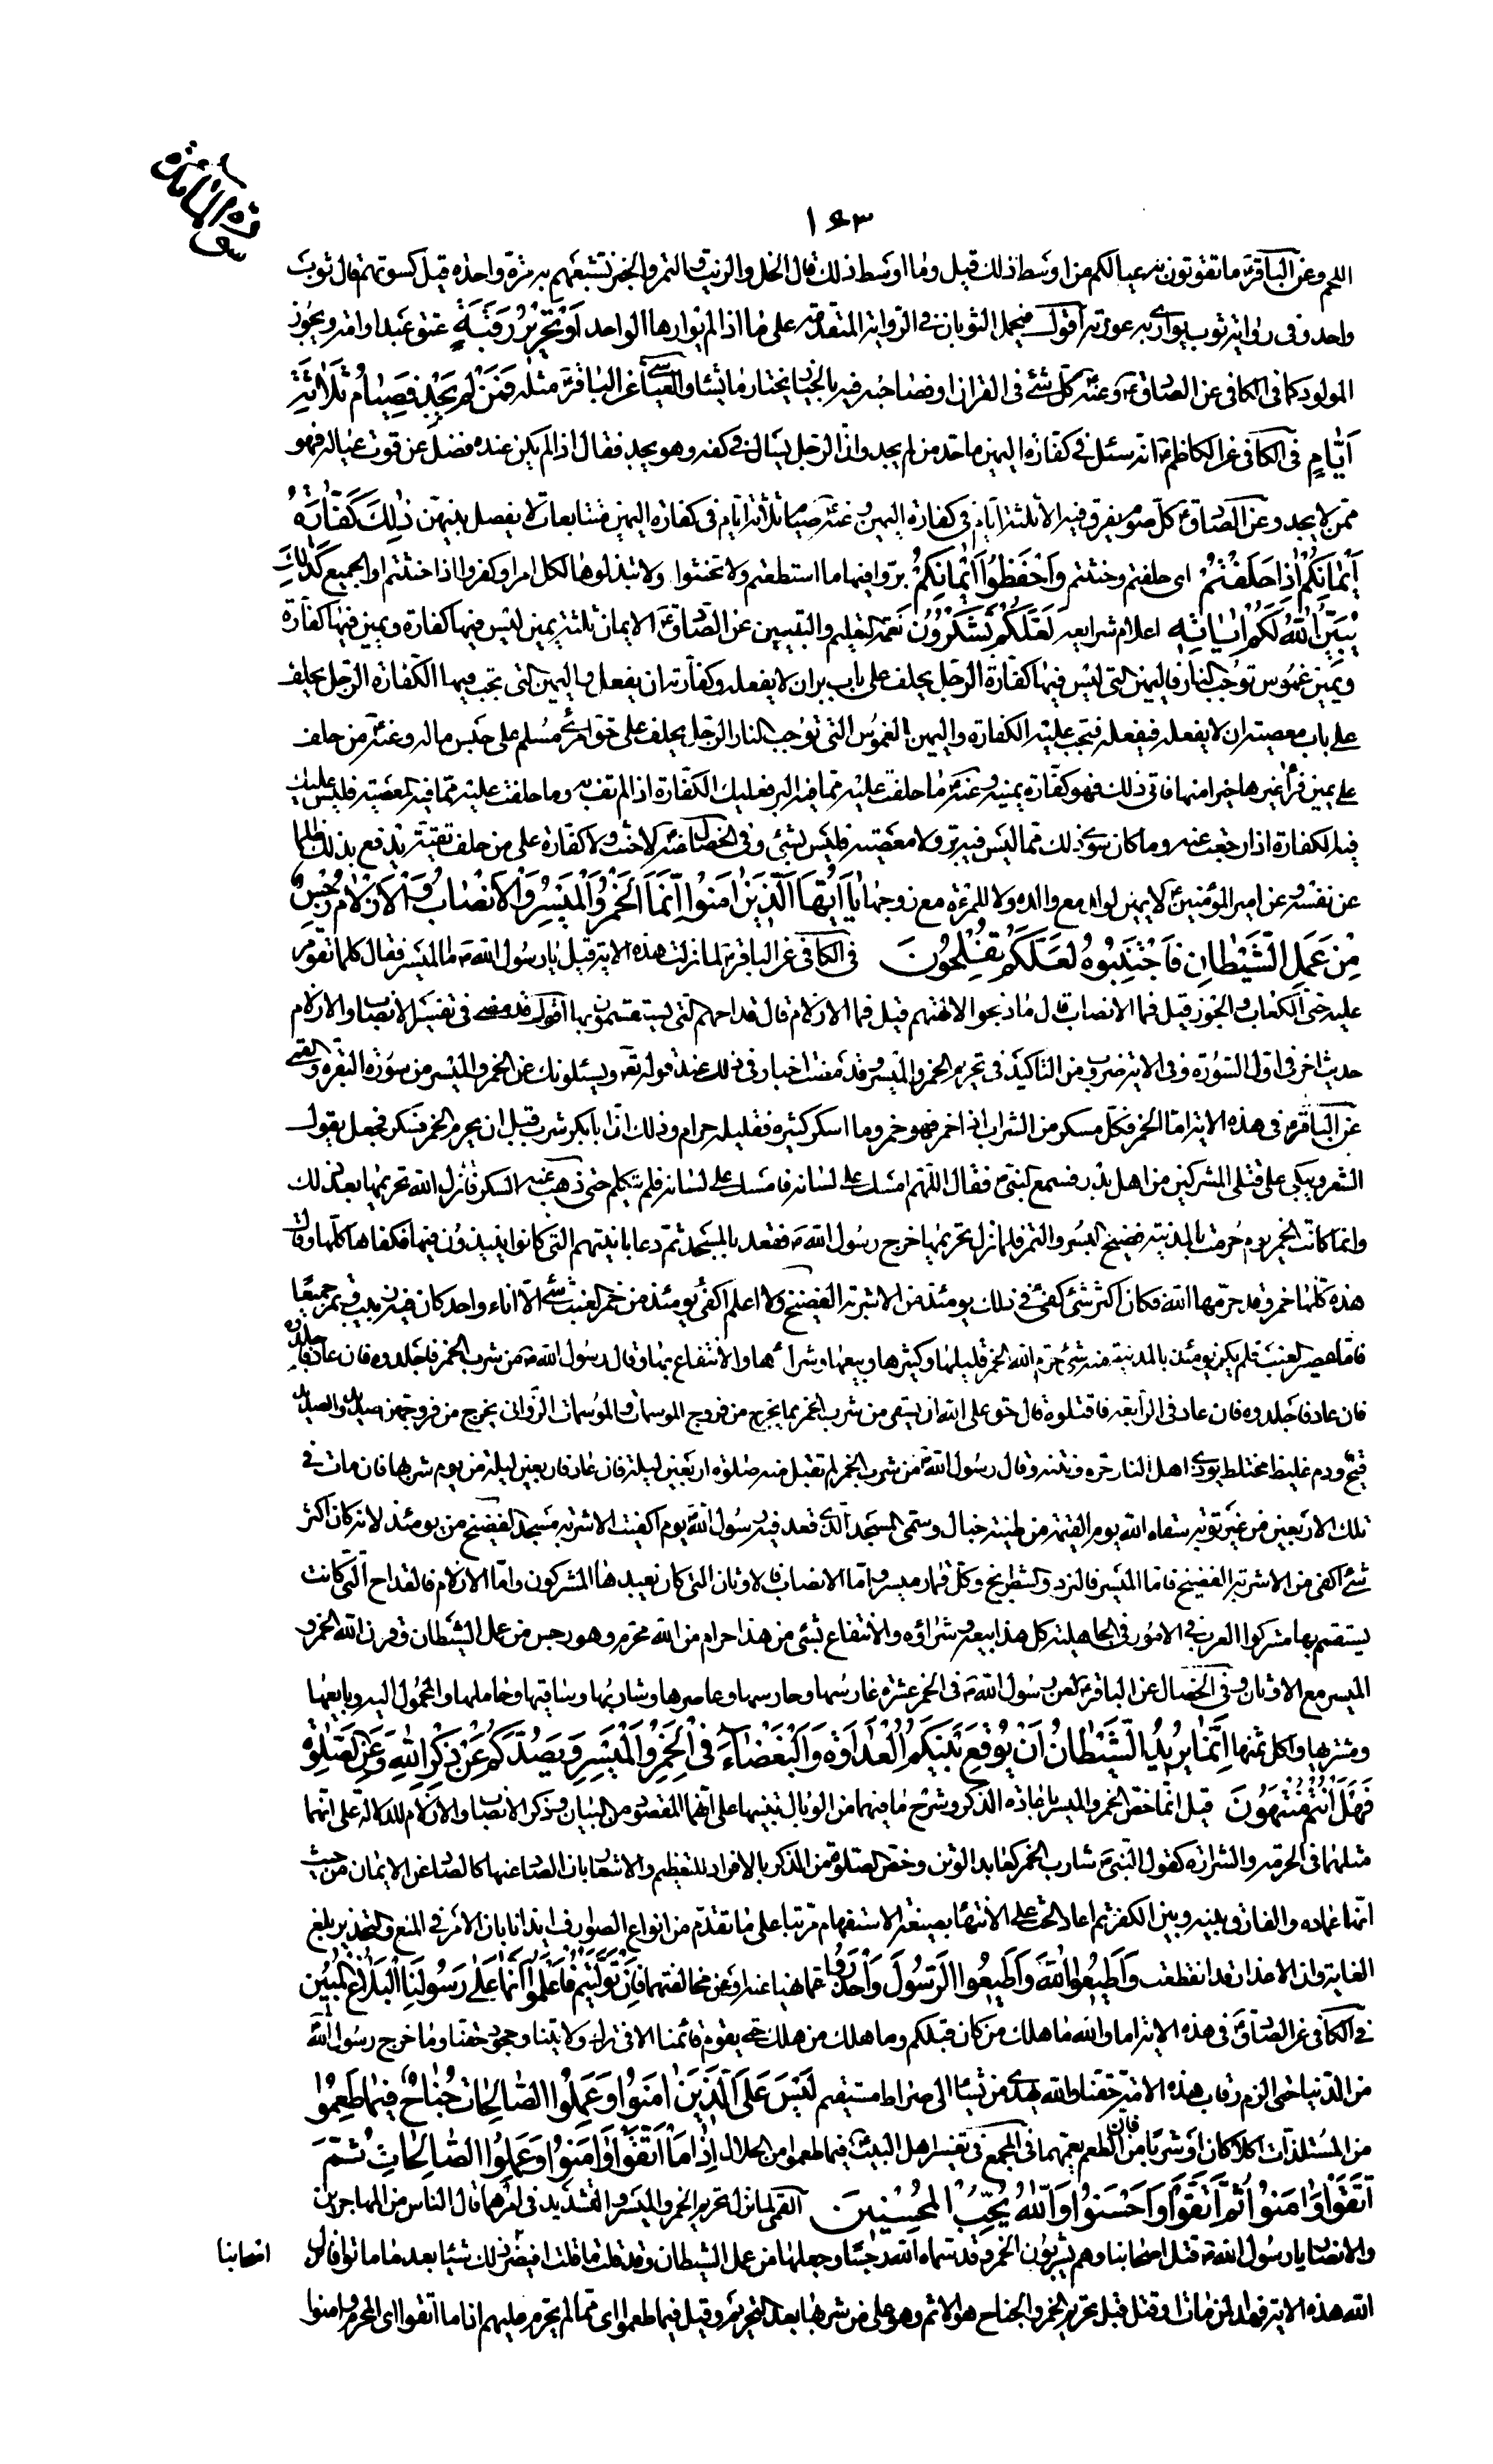 سورة المائدة
١٤٣
اللحم وعن الباقر ع ما تقوتون به عيالكم من اوسط ذلك قيل وما اوسط ذلك قال الخل والزيت والتمر والخبز تشبعهم به مرة واحدة قيل كسوتهم قال ثوب
واحد وفي رواية ثوب يوارى به عورته اقول فيحمل الثوبان في الرواية المتقدمة على ما اذا لم يوارها الواحد اَوْ تَحْرِيرُ رَقَبَةٍ عتق عبد او امة ويجوز
المولود كما في الكافي عن الصادق ع وعنه كل شئ في القران او فصاحبه فيه بالخيار يختار ما يشاء والعياشي عن الباقر ع مثله فَمَنْ لَمْ يَجِدْ فَصِيامُ ثَلاثَةِ
اَيّامٍ في الكافي عن الكاظم ع انه سئل في كفارة اليمين ما حد من لم يجد وان الرجل يسال في كفه وهو يجد فقال اذا لم يكن عنده فضل عن قوت عياله فهو
ممن لا يجد وعن الصادق ع كل صوم يفرق فيه الا ثلثة ايام في كفارة اليمين وعنه ع صيام ثلاثة ايام في كفارة اليمين متتابعات لا يفصل بينهن ذلِكَ كَفّارَةُ
اَيْمانِكُمْ اِذا حَلَفْتُمْ اى حلفتم وحنثتم وَاحْفَظُوا اَيْمانَكُمْ برّوا فيها ما استطعتم ولا تحنثوا ولا تبذلوها لكل امر او كفروا اذا حنثتم او الجميع كَذلِكَ
يُبَيِّنُ اللهُ لَكُمْ اياتِه اعلام شرايعه لَعَلَّكُمْ تَشْكُرُونَ نعمة التعليم والتبيين عن الصادق ع الايمان ثلثة يمين ليس فيها كفارة ويمين فيها كفارة
ويمين غموس توجب النار فاليمين التي ليس فيها كفارة الرجل يحلف على باب بر ان لا يفعله وكفارته ان يفعل واليمين التي تجب فيها الكفارة الرجل يحلف
على باب معصية ان لا يفعله فيفعله فتجب عليه الكفارة واليمين الغموس التي توجب النار الرجل يحلف على حق امرئ مسلم على حبس ماله وعنه ع من حلف
على يمين فرأى غيرها خيرا منها فاتى ذلك فهو كفارة يمينه وعنه ع ما حلفت عليه مما فيه البر فعليك الكفارة اذا لم تف به وما حلفت عليه مما فيه المعصية فليس عليك
فيه الكفارة اذا رجعت عنه وما كان سوى ذلك مما ليس فيه بر ولا معصية فليس بشئ وفي الخصال عنه ع لا حنث ولا كفارة على من حلف تقية يدفع بذلك ظلما
عن نفسه وعن امير المؤمنين ع لا يمين لولد مع والده ولا للمرءة مع زوجها يا اَيُّهَا الَّذِينَ امَنُوا اِنَّمَا الْخَمْرُ وَالْمَيْسِرُ وَالْاَنْصابُ وَالْاَزْلامُ رِجْسٌ
مِنْ عَمَلِ الشَّيْطانِ فَاجْتَنِبُوهُ لَعَلَّكُمْ تُفْلِحُونَ في الكافي عن الباقر ع لما نزلت هذه الاية قيل يا رسول الله ص ما الميسر فقال كلما تقومر
عليه حتى الكعاب والجوز قيل فما الانصاب قال ما ذبحوا لالهتهم قيل فما الازلام قال قداحهم التي يستقسمون بها اقول قد مضى في تفسير الانصاب والازلام
حديث اخر في اول السورة وفي الاية ضروب من التاكيد في تحريم الخمر والميسر وقد مضت اخبار في ذلك عند قوله تع ويسئلونك عن الخمر والميسر من سورة البقرة والقمي
عن الباقر ع في هذه الاية اما الخمر فكل مسكر من الشراب اذا اخمر فهو خمر وما اسكر كثيره فقليله حرام وذلك ان ابابكر شرب قبل ان يحرم الخمر فسكر فجعل يقول
الشعر ويبكي على قتلى المشركين من اهل بدر فسمع النبي ص فقال اللهم امسك على لسانه فامسك على لسانه فلم يتكلم حتى ذهب عنه السكر فانزل الله تحريمها بعد ذلك
وانما كانت الخمر يوم حرمت بالمدينة فضيخ البسر والتمر فلما نزل تحريمها خرج رسول الله ص فقعد بالمسجد ثم دعا بانيتهم التي كانوا ينبذون فيها فكفاها كلها وقال
هذه كلها خمر وقد حرمها الله فكان اكثر شئ كفئ في ذلك يومئذ من الاشربة الفضيخ ولا اعلم اكفئ يومئذ من خمر العنب شئ الا اناء واحد كان فيه زبيب وتمر جميعا
فاما عصير العنب فلم يكن يومئذ بالمدينة منه شئ حرم الله الخمر قليلها وكثيرها وبيعها وشراءها والانتفاع بها وقال رسول الله ص من شرب الخمر فاجلدوه فان عاد فاجلدوه
فان عاد فاجلدوه فان عاد في الرابعة فاقتلوه قال حق على الله ان يسقى من شرب الخمر مما يخرج من فروج المومسات والمومسات الزواني يخرج من فروجهن صديد والصديد
قيح ودم غليظ مختلط يوذى اهل النار حره ونتنه وقال رسول الله ص من شرب الخمر لم تقبل منه صلوة اربعين ليلة فان عاد فاربعين ليلة من يوم شربها فان مات في
تلك الاربعين من غير توبة سقاه الله يوم القيمة من طينة خبال وسمى المسجد الذى قعد فيه رسول الله ص يوم اكفيت الاشربة مسجد الفضيخ من يومئذ لانه كان اكثر
شئ اكفئ من الاشربة الفضيخ فاما الميسر فالنرد والشطرنج وكل قمار ميسر واما الانصاب فالاوثان التي كان يعبدها المشركون واما الازلام فالقداح التي كانت
يستقسم بها مشركوا العرب في الامور في الجاهلية كل هذا بيعه وشراؤه والانتفاع بشئ من هذا حرام من الله محرم وهو رجس من عمل الشيطان وقرن الله الخمر و
الميسر مع الاوثان وفي الخصال عن الباقر ع لعن رسول الله ص في الخمر عشرة غارسها وحارسها وعاصرها وشاربها وساقيها وحاملها والمحمول اليه وبايعها
ومشتريها واكل ثمنها اِنَّما يُرِيدُ الشَّيْطانُ اَنْ يُوقِعَ بَيْنَكُمُ الْعَداوَةَ وَالْبَغْضاءَ فِي الْخَمْرِ وَالْمَيْسِرِ وَيَصُدَّكُمْ عَنْ ذِكْرِ اللهِ وَعَنِ الصَّلوةِ
فَهَلْ اَنْتُمْ مُنْتَهُونَ قيل انما خص الخمر والميسر باعادة الذكر وشرح ما فيهما من الوبال تنبيها على انهما المقصود من البيان وذكر الانصاب والازلام للدلالة على انهما
مثلهما في الحرمة والشرارة كقول النبي ص شارب الخمر كعابد الوثن وخص الصلوة من الذكر بالافراد للتعظيم والاشعار بان الصاد عنها كالصاد عن الايمان من حيث
انها عماده والفارق بينه وبين الكفر ثم اعاد الحث على الانتهاء بصيغة الاستفهام مرتبا على ما تقدم من انواع الصوارف ايذانا بان الامر في المنع والتحذير بلغ
الغاية وان الاعذار قد انقطعت وَاَطِيعُوا اللهَ وَاَطِيعُوا الرَّسُولَ وَاحْذَرُوا عما نهيا عنه او عن مخالفتهما فَاِنْ تَوَلَّيْتُمْ فَاعْلَمُوا اَنَّما عَلى رَسُولِنَا الْبَلاغُ الْمُبِينُ
في الكافي عن الصادق ع في هذه الاية اما والله ما هلك من كان قبلكم وما هلك من هلك حتى يقوم قائمنا الا في ترك ولايتنا وجحود حقنا وما خرج رسول الله ص
من الدنيا حتى الزم رقاب هذه الامة حقنا والله يهدى من يشاء الى صراط مستقيم لَيْسَ عَلَى الَّذِينَ امَنُوا وَعَمِلُوا الصّالِحاتِ جُناحٌ فِيما طَعِمُوا
من المستلذات اكلا كان او شربا فان الطعم يعمهما في المجمع في تفسير اهل البيت ع فيما طعموا من الحلال اِذا مَا اتَّقَوْا وَامَنُوا وَعَمِلُوا الصّالِحاتِ ثُمَّ
اتَّقَوْا وَامَنُوا ثُمَّ اتَّقَوْا وَاَحْسَنُوا وَاللهُ يُحِبُّ الْمُحْسِنِينَ القمي لما نزل تحريم الخمر والميسر والتشديد في امرهما قال الناس من المهاجرين
والانصار يا رسول الله ص قتل اصحابنا وهم يشربون الخمر وقد سماه الله رجسا وجعلها من عمل الشيطان وقد قلت ما قلت افيضر ذلك شيئا بعد ما ماتوا فانزل
اصحابنا
الله هذه الاية فهذا لمن مات او قتل قبل تحريم الخمر والجناح هو الاثم وهو على من شربها بعد التحريم وقيل فيما طعموا اى مما لم يحرم عليهم اذا ما اتقوا اى المحرم وامنوا